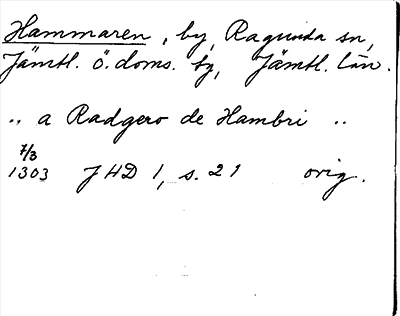 Hammaren, by, Ragunda sn,
Jämtl. ö. doms. tg, Jämtl. län.
.. a Radgero de Hambri ..
7/3
1303 JHD 1, s. 21 orig.